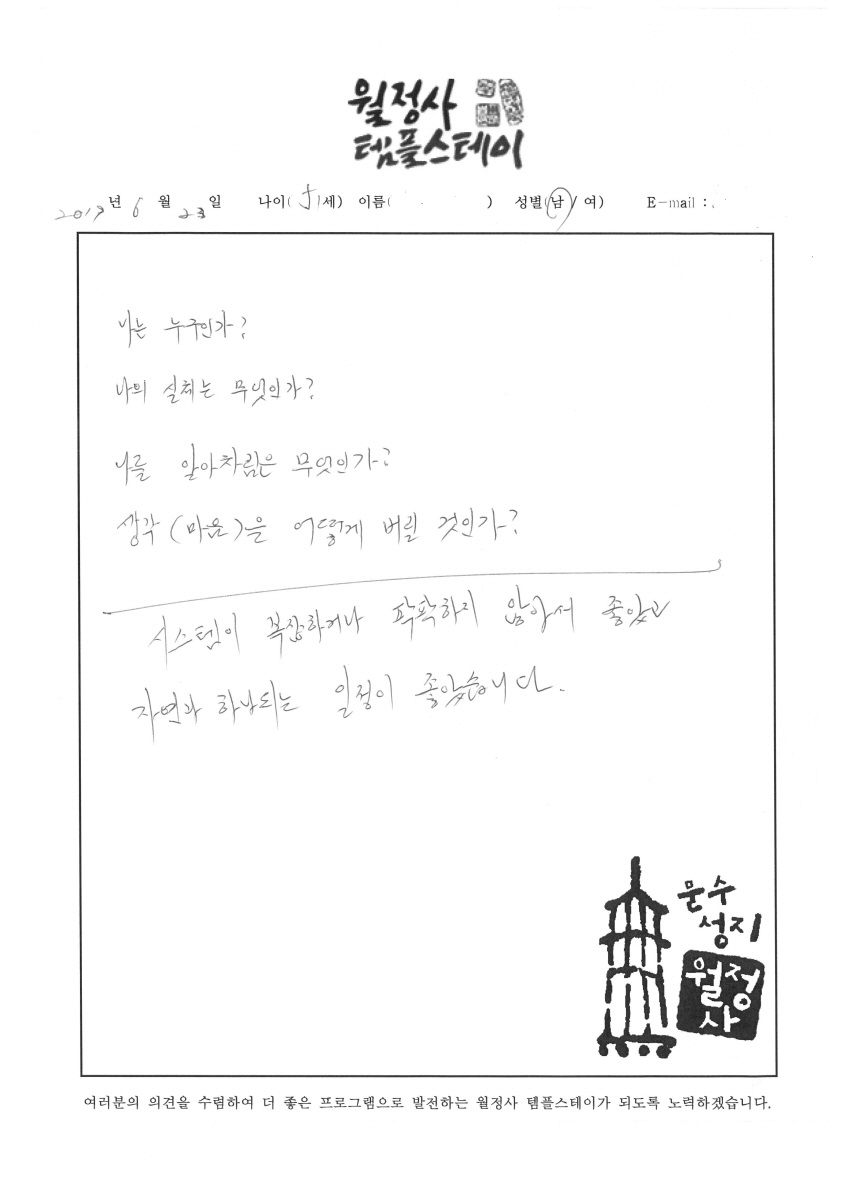 월정사
템플스테이
2017년 6월 23일 나이(51세) 이름( ) 성별(남/여) E-mail :
나는 누구인가?
나의 실체는 무엇인가?
나를 알아차림은 무엇인가?
생각(마음)은 어떻게 버릴 것인가?
시스템이 복잡하거나 팍팍하지 않아서 좋았고
자연과 하나되는 일정이 좋았습니다.
문수
성지
월정
사
여러분의 의견을 수렴하여 더 좋은 프로그램으로 발전하는 월정사 템플스테이가 되도록 노력하겠습니다.